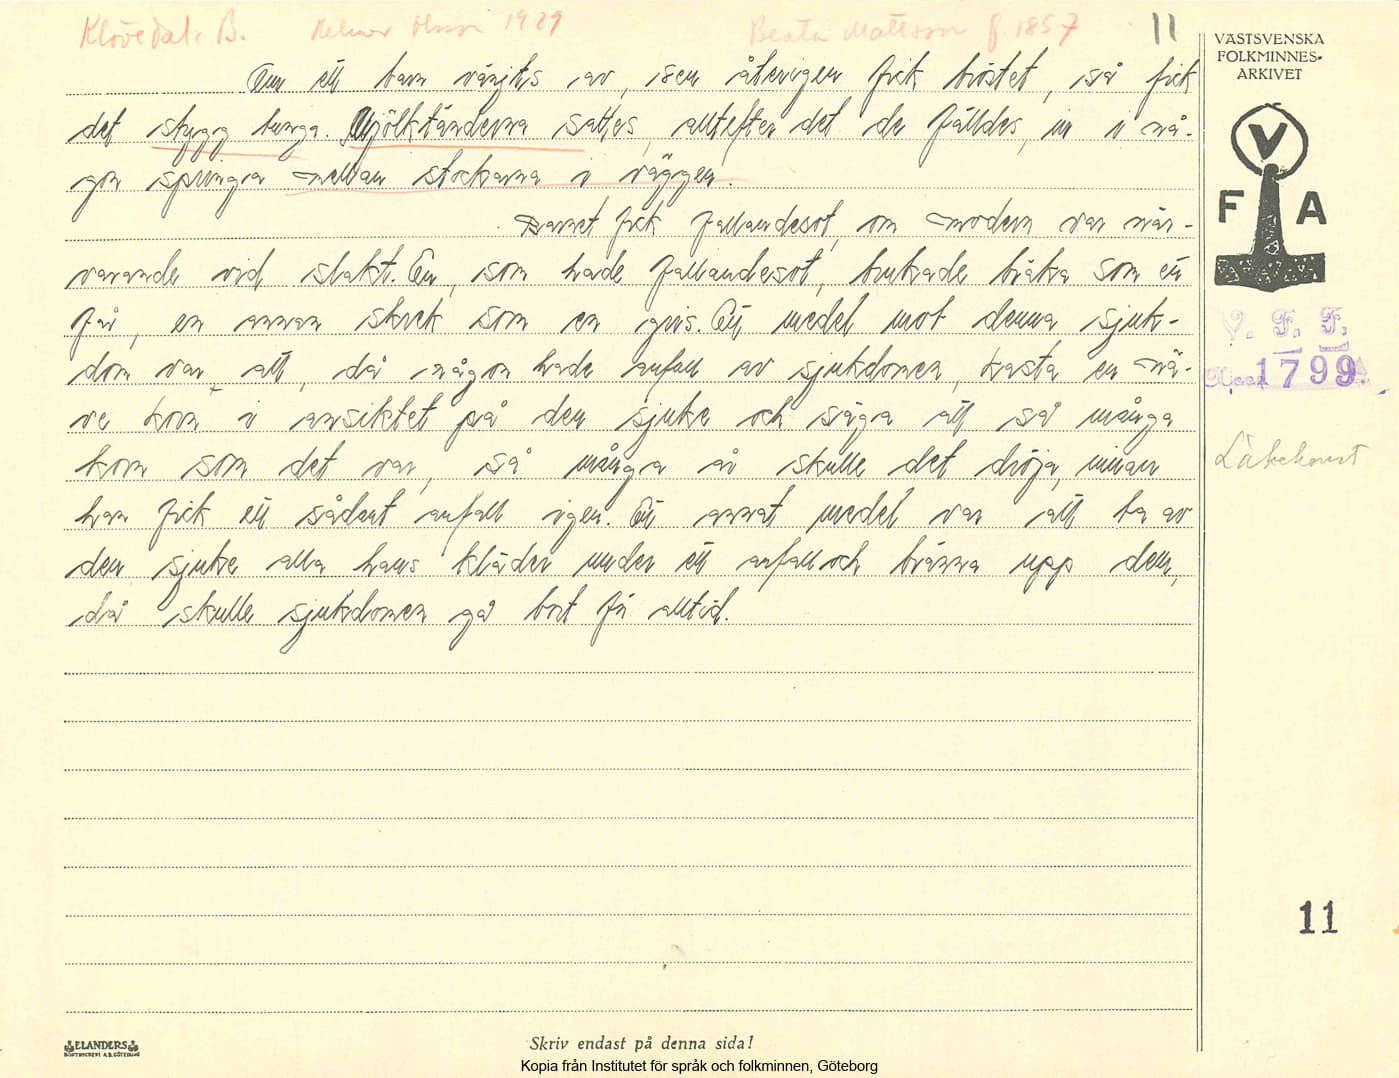 Klövedal. B. Helmer Olsson 1929 Beata Mattsson f. 1857 11
VÄSTSVENSKA
FOLKMINNES-
ARKIVET
Om ett barn vänjts av, sen återigen fick bröstet, så fick
det stygg tunga. Mjölktänderna sattes, alltefter det de fälldes, in i nå-
gon springa mellan stockarna i väggen.
Barnet fick fallandesot, om modern var när-
varande vid slakt. En, som hade fallandesot, brukade bräka som ett
får, en annan skrek som en gris. Ett medel mot denna sjuk-
dom var, att, då någon hade anfall av sjukdomen, kasta en nä-
ve korn i ansiktet på den sjuke och säga att så många
korn som det var, så många år skulle det dröja, innan
han fick ett sådant anfall igen. Ett annat medel var att ta av
den sjuke alla hans kläder under ett anfall och bränna upp dem,
då skulle sjukdomen gå bort för alltid.
V
F A
V. F. F.
1799
Läkekonst
11
ELANDERS
BOKTRYCKERI A.B. GÖTEBORG
Skriv endast på denna sida!
Kopia från Institutet för språk och folkminnen, Göteborg